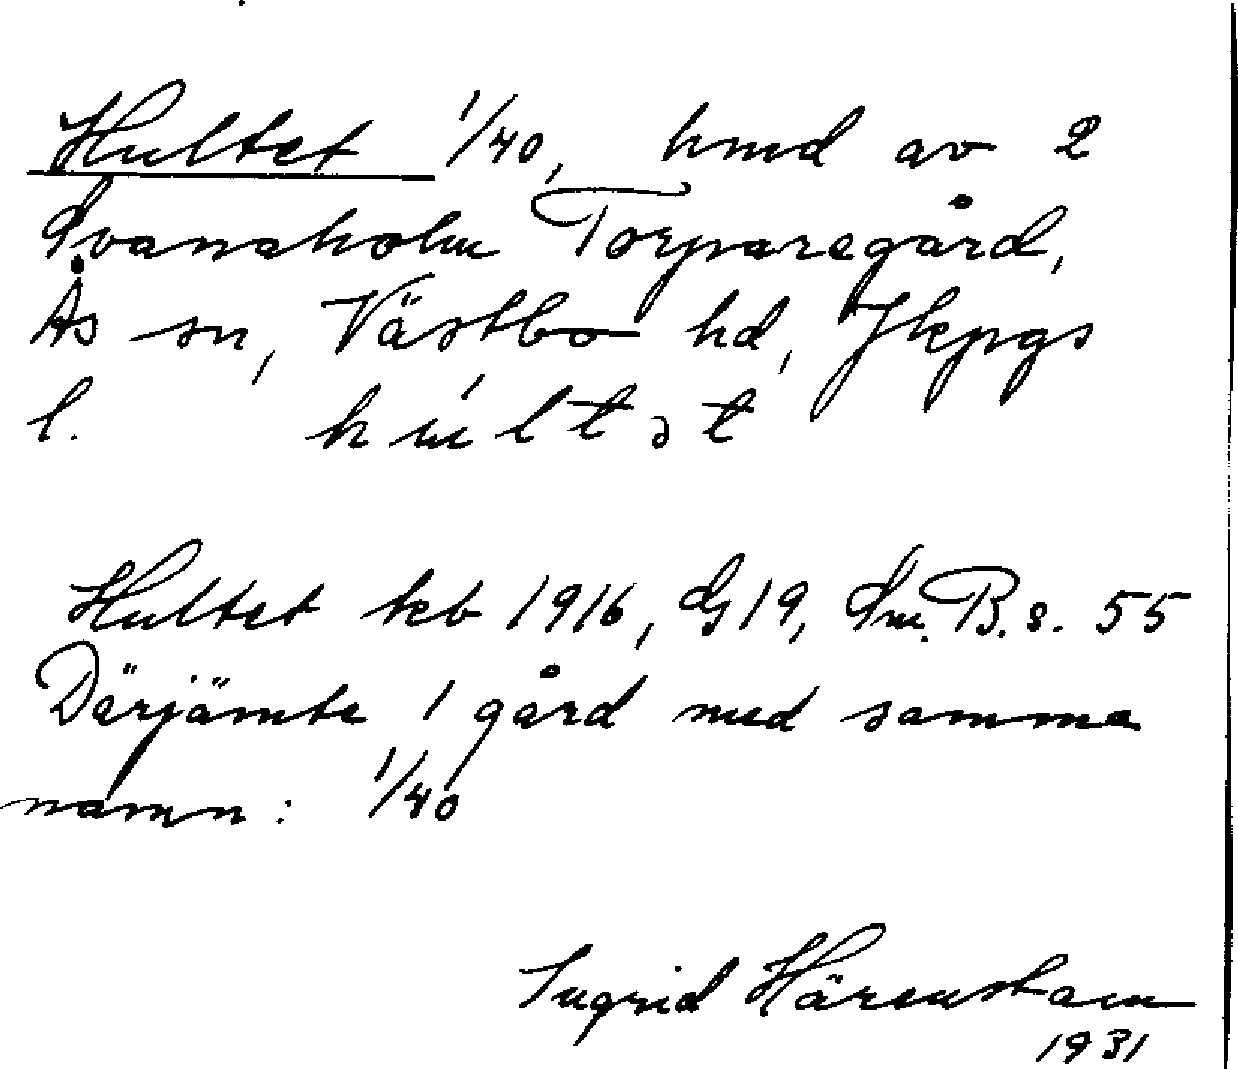 Hultet 1/40, hmd av 2
Svanaholm Torparegård,
Ås sn, Västbo hd, Jkpgs
l. húltət
Hultet kb 1916, G19, Sm.B.s. 55
Därjämte 1 gård med samma
namn: 1/40
Ingrid Härenstam
1931